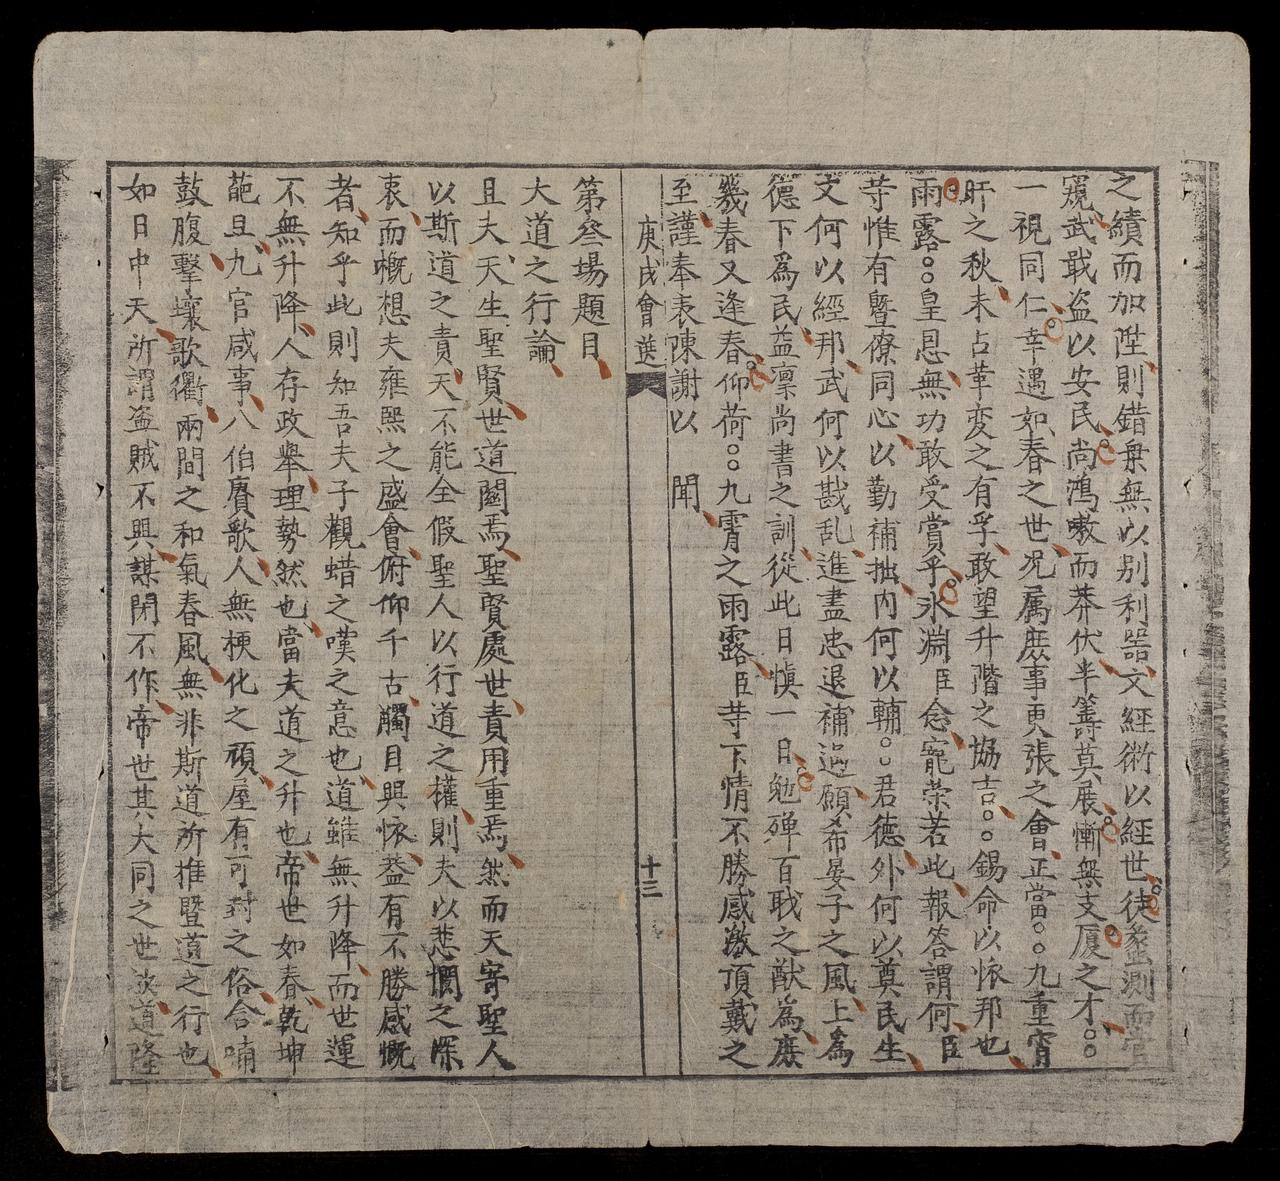 之績而加陞則錯柒無以别利器文經術以經世徒蠡測而管
窺武戢盗以安民尚鴻嗷而莽伏半籌莫展慚無支厦之才○○
一視同仁幸遇如春之世况属庶事更張之會正當○○九重宵
旰之秋未占革变之有孚敢望升階之協吉○○錫命以恢邦也
雨露○○皇恩無功敢受賞乎氷淵臣念寵荣若此報答謂何臣
䓁惟有曁僚同心以勤補拙内何以輔○君德外何以奠民生
文何以經邦武何以戡乱進盡忠退補過願希晏子之風上為
德下為民益凛尚書之訓從此日慎一日勉殫百戢之猷為庶
幾春又逢春仰荷○○九霄之雨露臣䓁下情不勝感激頂戴之
至謹奉表陳謝以 聞
庚戌會選 十三
第叄塲題目
大道之行論
且夫天生聖賢世道關焉聖賢處世責用重焉然而天寄聖人
以斯道之責天不能全假聖人以行道之權則夫以悲憫之深
衷而慨想夫雍熙之盛會俯仰千古觸目興懷盖有不勝感慨
者知乎此則知吾夫子觀蜡之嘆之意也道雖無升降而世運
不無升降人存政舉理勢然也當夫道之升也帝世如春乾坤
葩旦九官咸事八伯賡歌人無梗化之頑屋有可封之俗含哺
鼓腹擊壤歌衢兩間之和氣春風無非斯道所推曁道之行也
如日中天所謂盗賊不興謀閉不作帝世其大同之世歟道隆